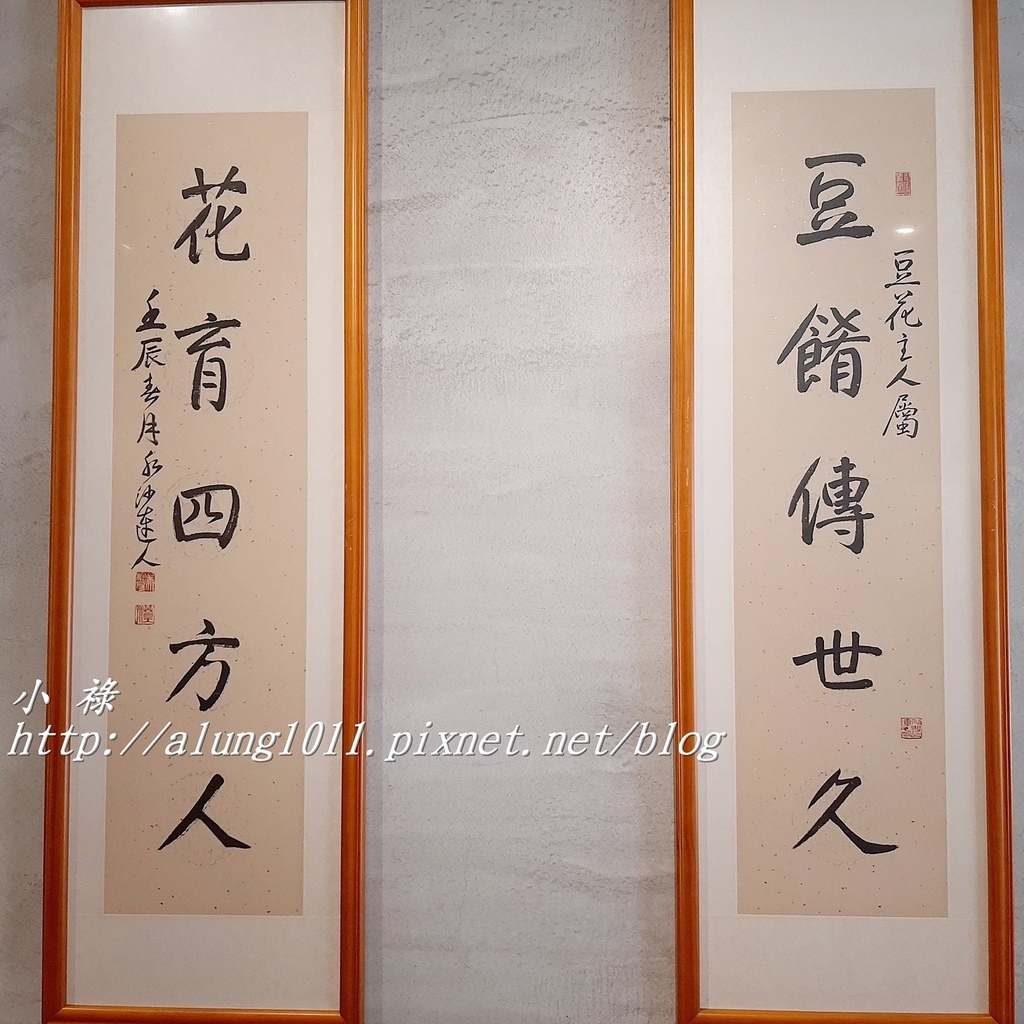 豆花主人屬
豆餚傳世久
花育四方人
壬辰春月水沙連人
小祿
http://alung1011.pixnet.net/blog